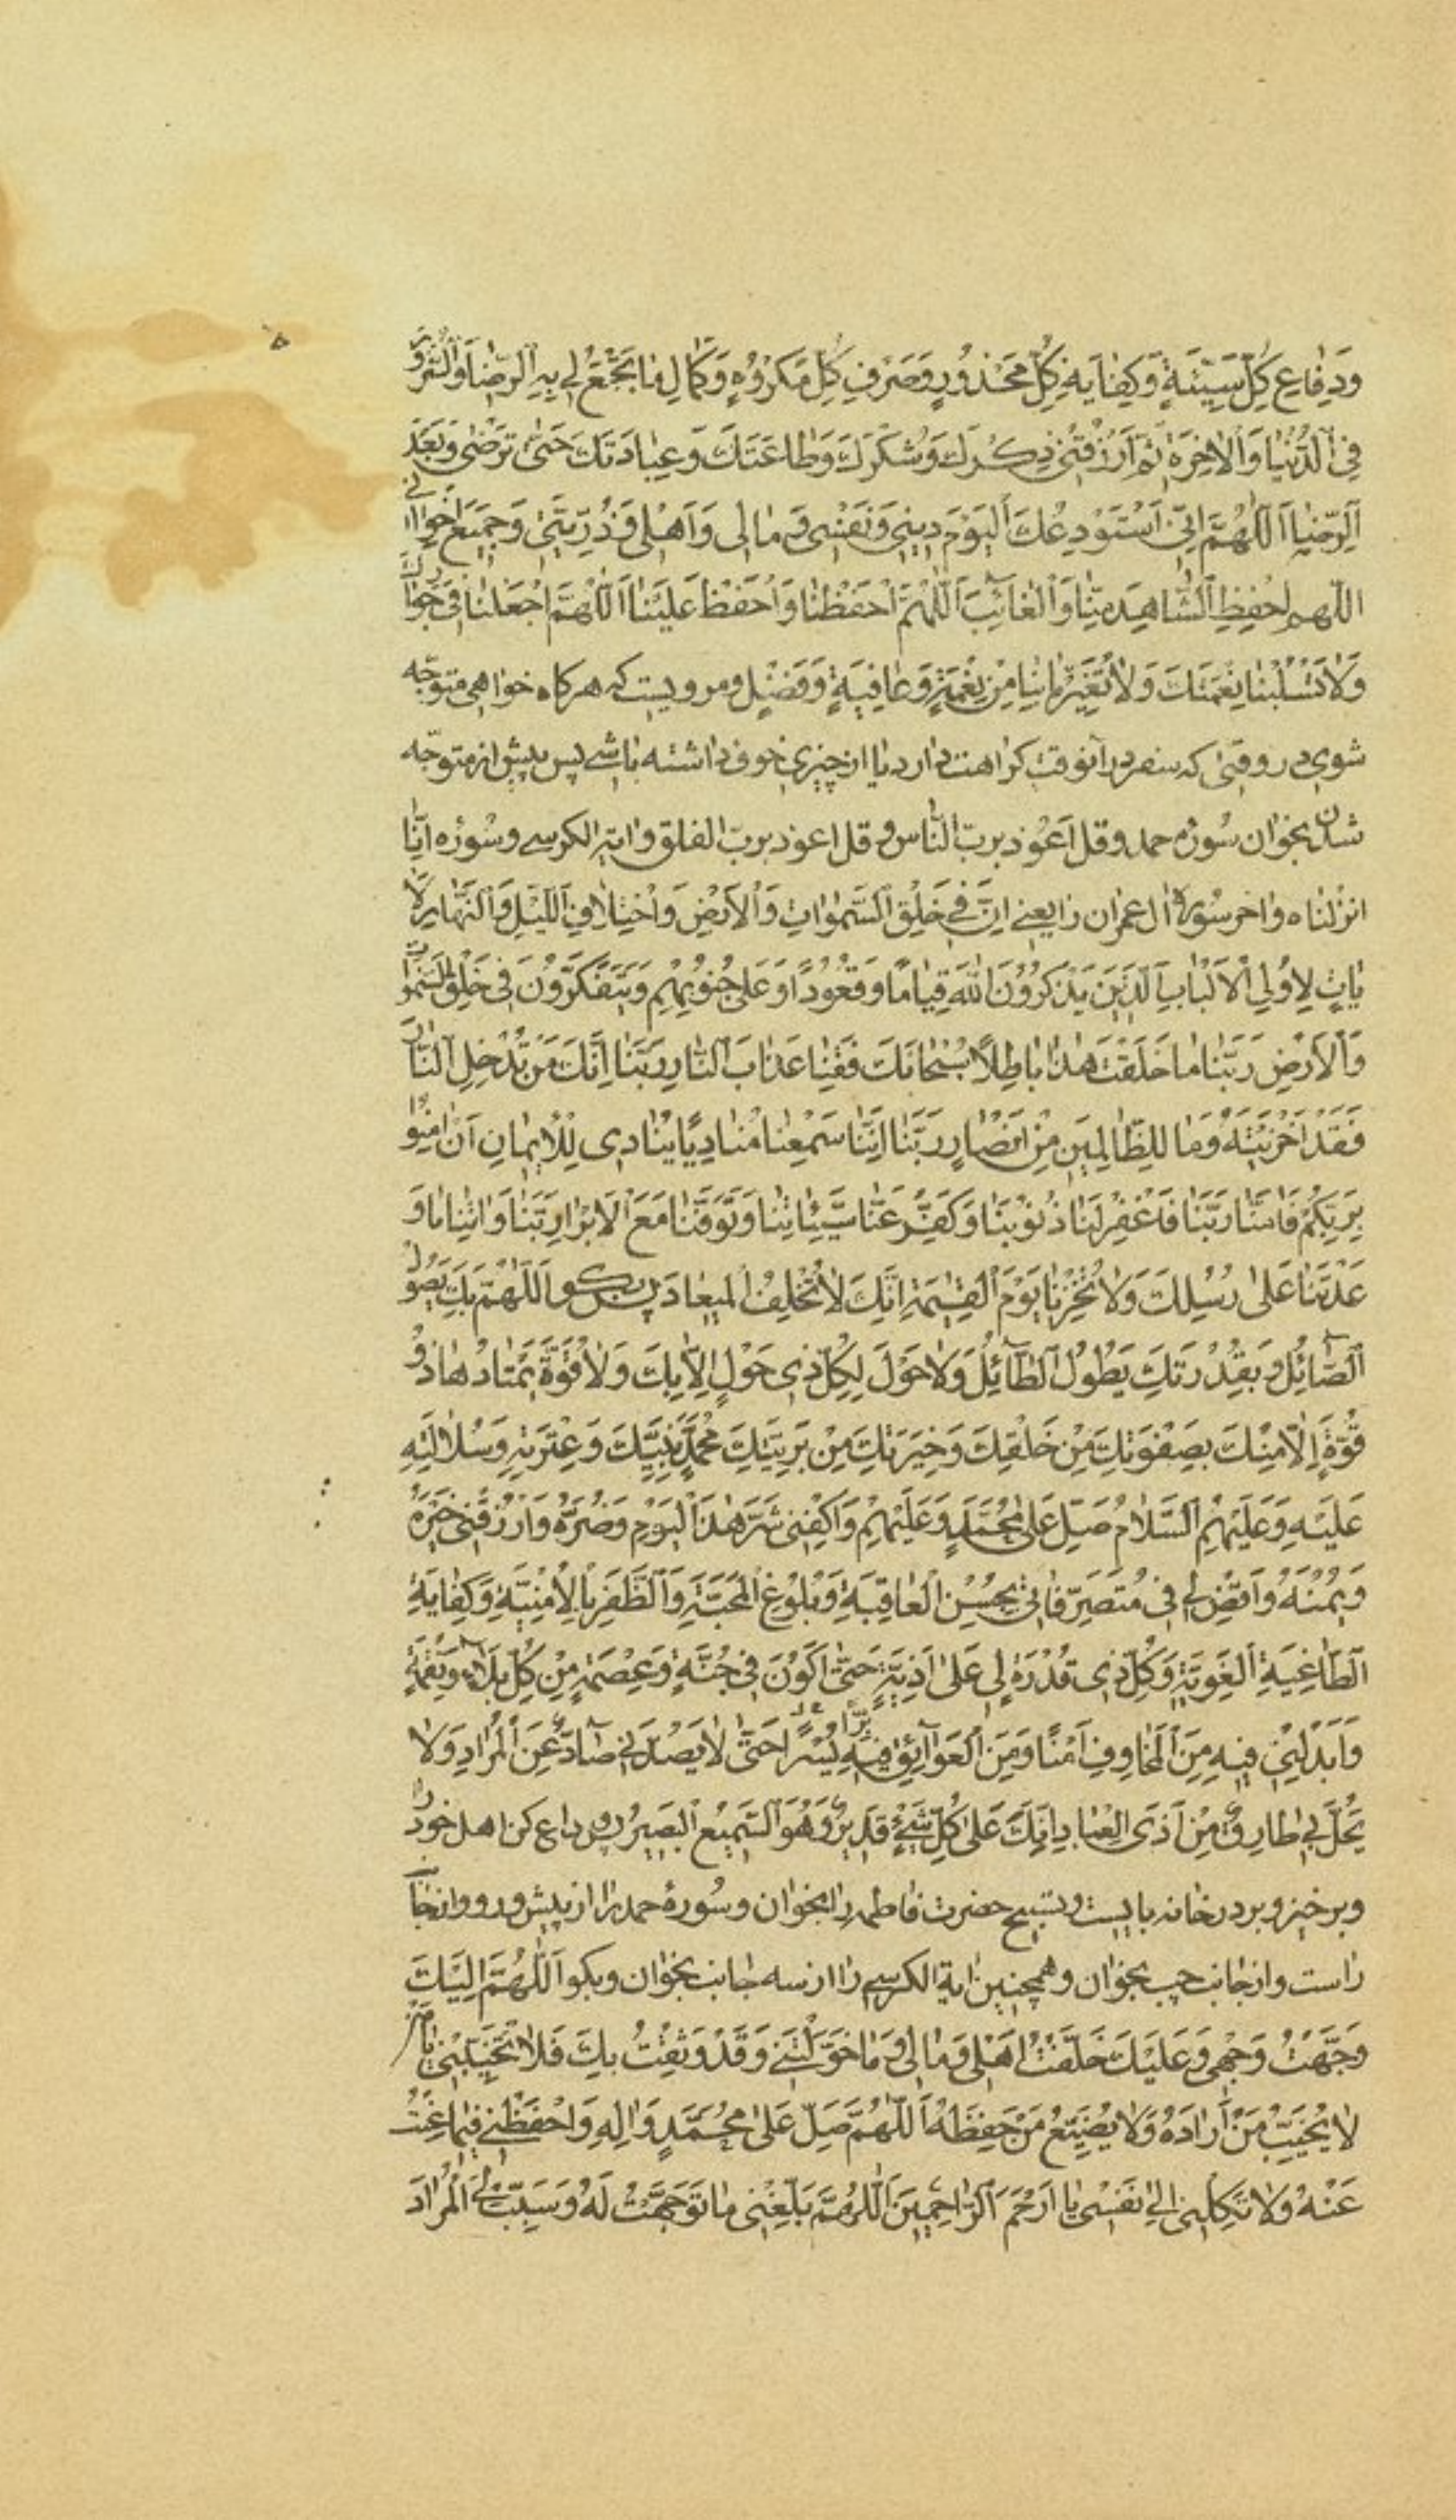 ۵
وَدِفَاعِ كُلِّ سَيِّئَةٍ وَكِفَايَةِ كُلِّ مَحْذُورٍ وَصَرْفِ كُلِّ مَكْرُوهٍ وَكَمَالِ مَا يَجْمَعُ لِي بِهِ الرِّضَا وَالسُّرُورَ
فِي الدُّنْيَا وَالْآخِرَةِ ثُمَّ ارْزُقْنِي ذِكْرَكَ وَشُكْرَكَ وَطَاعَتَكَ وَعِبَادَتَكَ حَتَّى تَرْضَى وَبَعْدَ
الرِّضَا اَللَّهُمَّ اِنِّي اَسْتَوْدِعُكَ الْيَوْمَ دِينِي وَنَفْسِي وَمَالِي وَاَهْلِي وَذُرِّيَّتِي وَجَمِيعَ اِخْوَانِي
اللّهم احْفَظِ الشَّاهِدَ مِنَّا وَالْغَائِبَ اَللَّهُمَّ احْفَظْنَا وَاحْفَظْ عَلَيْنَا اَللَّهُمَّ اجْعَلْنَا فِي جِوَارِكَ
وَلَا تَسْلُبْنَا نِعْمَتَكَ وَلَا تُغَيِّرْ مَا بِنَا مِنْ نِعْمَةٍ وَعَافِيَةٍ وَفَضْلٍ ومرويست كه هركاه خواهى متوجّه
شوى در وقتى كه سفر در آنوقت كراهت دارد يا از چيزى خوف داشته باشى پس پيش از متوجّه
شدن بخوان سُورهٔ حمد وقل اَعُوذ بربّ النّاس وقل اعوذ بربّ الفلق واية الكرسى وسُوره اِنّا
انزلناه واخر سُورهٔ ال عمران را يعنى اِنَّ فِي خَلْقِ السَّمٰوَاتِ وَالْاَرْضِ وَاخْتِلَافِ اللَّيْلِ وَالنَّهَارِ لَآ
يَاتٍ لِاُولِي الْاَلْبَابِ اَلَّذِينَ يَذْكُرُونَ اللّٰهَ قِيَامًا وَقُعُودًا وَعَلٰى جُنُوبِهِمْ وَيَتَفَكَّرُونَ فِي خَلْقِ السَّمٰوَاتِ
وَالْاَرْضِ رَبَّنَا مَا خَلَقْتَ هٰذَا بَاطِلًا سُبْحَانَكَ فَقِنَا عَذَابَ النَّارِ رَبَّنَا اِنَّكَ مَنْ تُدْخِلِ النَّارَ
فَقَدْ اَخْزَيْتَهُ وَمَا لِلظَّالِمِينَ مِنْ اَنْصَارٍ رَبَّنَا اِنَّنَا سَمِعْنَا مُنَادِيًا يُنَادِي لِلْاِيمَانِ اَنْ اٰمِنُوا
بِرَبِّكُمْ فَاٰمَنَّا رَبَّنَا فَاغْفِرْ لَنَا ذُنُوبَنَا وَكَفِّرْ عَنَّا سَيِّئَاتِنَا وَتَوَفَّنَا مَعَ الْاَبْرَارِ رَبَّنَا وَاٰتِنَا مَا وَ
عَدْتَنَا عَلٰى رُسُلِكَ وَلَا تُخْزِنَا يَوْمَ الْقِيٰمَةِ اِنَّكَ لَا تُخْلِفُ الْمِيعَادَ پس بكو اَللّٰهُمَّ بِكَ يَصُولُ
الصَّآئِلُ وَبِقُدْرَتِكَ يَطُولُ الطَّآئِلُ وَلَا حَوْلَ لِكُلِّ ذِي حَوْلٍ اِلَّا بِكَ وَلَا قُوَّةَ يَمْتَادُهَا ذُو
قُوَّةٍ اِلَّا مِنْكَ بِصَفْوَتِكَ مِنْ خَلْقِكَ وَخِيَرَتِكَ مِنْ بَرِيَّتِكَ مُحَمَّدٍ نَبِيِّكَ وَعِتْرَتِهِ وَسُلَالَتِهِ
عَلَيْهِ وَعَلَيْهِمُ السَّلَامُ صَلِّ عَلٰى مُحَمَّدٍ وَعَلَيْهِمْ وَاكْفِنِي شَرَّ هٰذَا الْيَوْمِ وَضُرَّهُ وَارْزُقْنِي خَيْرَهُ
وَيُمْنَهُ وَاقْضِ لِي فِي مُتَصَرَّفَاتِي بِحُسْنِ الْعَاقِبَةِ وَبُلُوغِ الْمَحَبَّةِ وَالظَّفَرِ بِالْاُمْنِيَّةِ وَكِفَايَةِ
الطَّاغِيَةِ الْغَوِيَّةِ وَكُلِّ ذِي قُدْرَةٍ لِي عَلٰى اَذِيَّةٍ حَتّٰى اَكُونَ فِي جُنَّةٍ وَعِصْمَةٍ مِنْ كُلِّ بَلَآءٍ وَنِقْمَةٍ
وَاَبْدِلْنِي فِيهِ مِنَ الْمَخَاوِفِ اَمْنًا وَمِنَ الْعَوَآئِقِ فِيهِ يُسْرًا حَتّٰى لَا يَصُدَّنِي صَآدٌّ عَنِ الْمُرَادِ وَلَا
يَحُلَّ بِي طَارِقٌ مِنْ اَذَى الْعِبَادِ اِنَّكَ عَلٰى كُلِّ شَيْءٍ قَدِيرٌ وَهُوَ السَّمِيعُ الْبَصِيرُ پس وداع كن اهل خود را
وبرخيز وبر در خانه بايست وتسبيح حضرت فاطمه را بخوان وسُورهٔ حمد را از پيش رو واز جانب
راست واز جانب چپ بخوان وهمچنين اية الكرسى را از سه جانب بخوان وبكو اَللّٰهُمَّ اِلَيْكَ
وَجَّهْتُ وَجْهِي وَعَلَيْكَ خَلَّفْتُ اَهْلِي وَمَالِي وَمَا خَوَّلْتَنِي وَقَدْ وَثِقْتُ بِكَ فَلَا تُخَيِّبْنِي يَا مَنْ
لَا يُخَيِّبُ مَنْ اَرَادَهُ وَلَا يُضَيِّعُ مَنْ حَفِظَهُ اَللّٰهُمَّ صَلِّ عَلٰى مُحَمَّدٍ وَاٰلِهِ وَاحْفَظْنِي فِيمَا غِبْتُ
عَنْهُ وَلَا تَكِلْنِي اِلٰى نَفْسِي يَا اَرْحَمَ الرَّاحِمِينَ اَللّٰهُمَّ بَلِّغْنِي مَا تَوَجَّهْتُ لَهُ وَسَبِّبْ لِيَ الْمُرَادَ